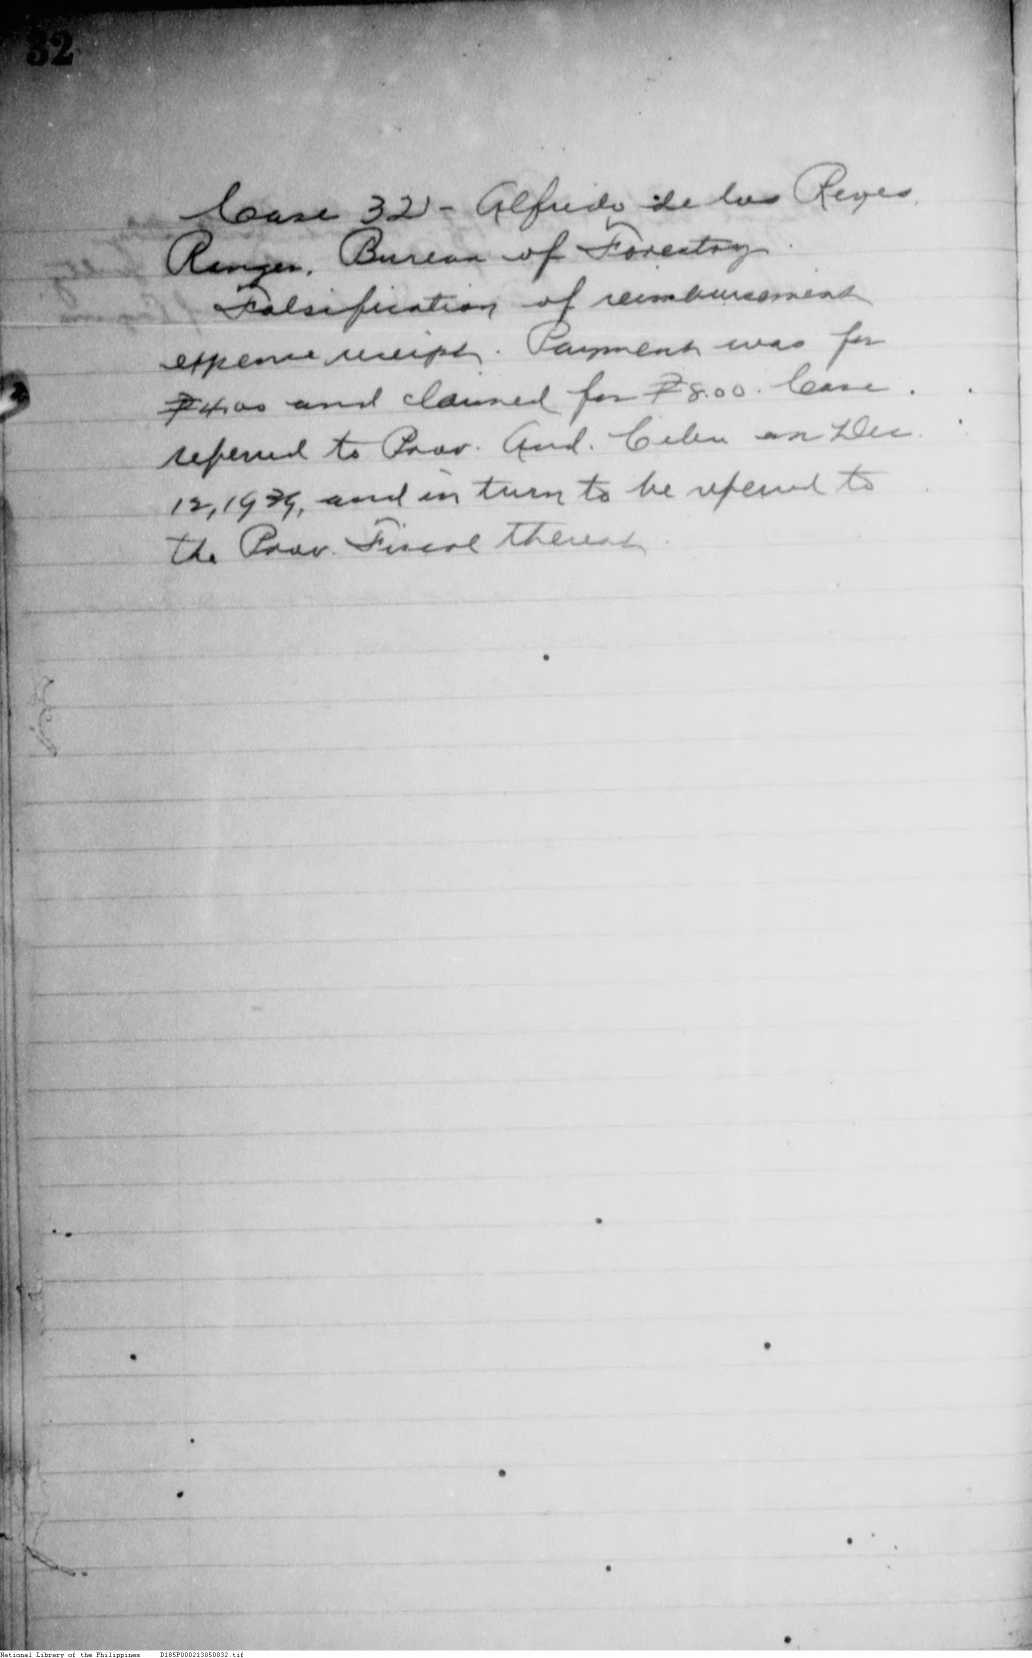 32
Case 32 - Alfredo de los Reyes,
Ranger, Bureau of Forestry.
Falsification of reimbursement
expense receipt. Payment was for
₱4.00 and claimed for ₱8.00. Case
referred to Prov. Aud. Cebu on Dec.
12, 1939, and in turn to be referred to
the Prov. Fiscal thereat.
National Library of the Philippines D185P000213050032.tif